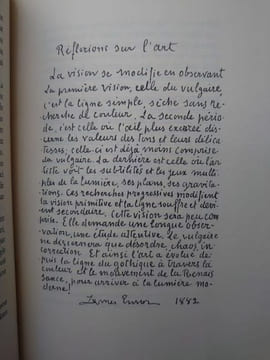 Réflexions sur l'art
La vision se modifie en observant
La première vision, celle du vulgaire,
c'est la ligne simple, sèche sans re-
cherche de couleur. La seconde pério-
de, c'est celle où l'œil plus exercé dis-
cerne les valeurs des tons et leurs délica
tesses; celle-ci est déjà moins comprise
du vulgaire. La dernière est celle où l'ar-
tiste voit les subtilités et les jeux multi-
ples de la lumière, ses plans, ses gravita-
tions. Ces recherches progressives modifient
la vision primitive et la ligne souffre et devi-
ent secondaire. Cette vision sera peu com-
prise. Elle demande une longue obser-
vation, une étude attentive. Le vulgaire
ne discernera que désordre, chaos, in-
correction. Et ainsi l'art a évolué de-
puis la ligne du gothique à travers la
couleur et le mouvement de la Renais
sance, pour arriver à la lumière mo-
derne!
James Ensor 1882